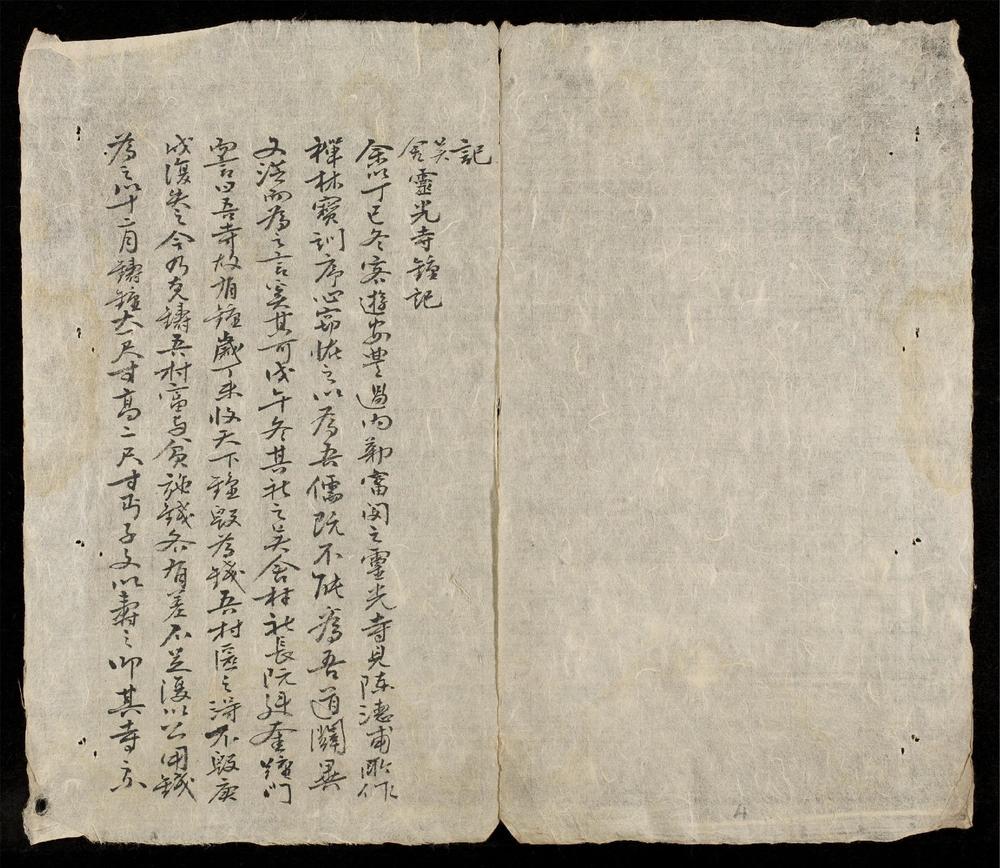 記
吳舍靈光寺鐘記
余以丁巳冬客遊安豊過內勒富閔之靈光寺見陳德甫所作
禪林寳訓序心竊怪之以為吾儒既不能為吾道闢異
又從而為之言奚其可戊午冬其社之吳舍村社長阮廷奎踵門
而言曰吾寺故有鐘歲丁未收天下鐘毀為錢吾村匿之得不毀庚
戌復失之今乃克鑄吾村富與貧施錢各有差不足復以公用錢
為之以十二月鑄鐘大一尺寸高二尺寸丐子文以壽之卯其寺亦